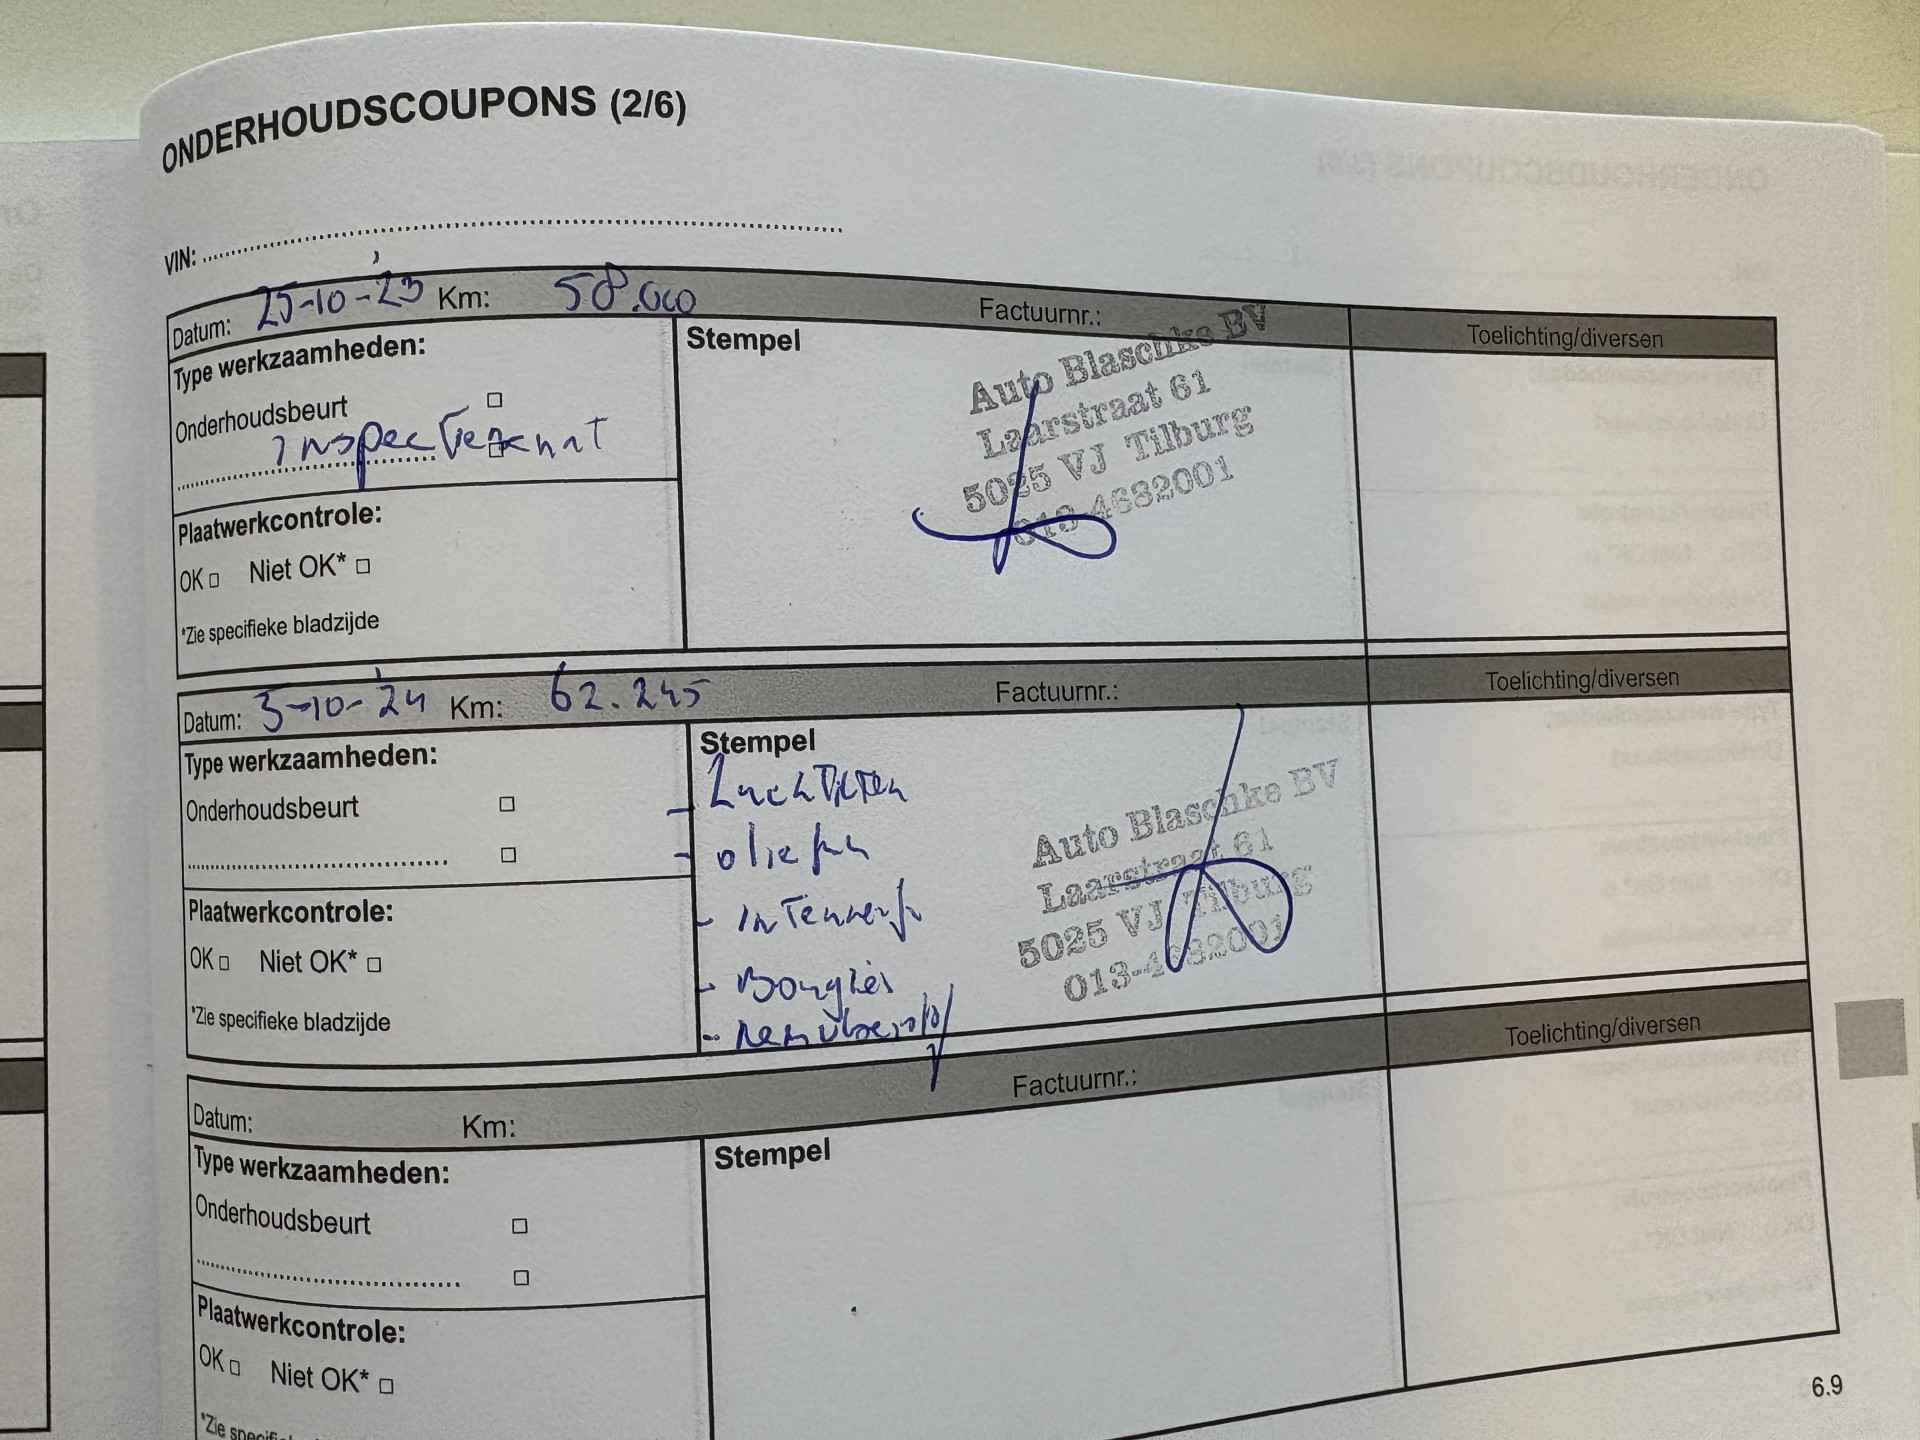 ONDERHOUDSCOUPONS (2/6)
VIN:
Datum: 25-10-'23 Km: 58.000 Factuurnr.: Toelichting/diversen
Type werkzaamheden:
Onderhoudsbeurt
Plaatwerkcontrole:
OK Niet OK*
*Zie specifieke bladzijde
Stempel
Auto Blaschke BV
Laarstraat 61
5025 VJ Tilburg
013-4682001
Datum: 3-10-'24 Km: 62.245 Factuurnr.: Toelichting/diversen
Type werkzaamheden:
Onderhoudsbeurt
Plaatwerkcontrole:
OK Niet OK*
*Zie specifieke bladzijde
Stempel
- Luchtfilter
- Bougies
Auto Blaschke BV
Laarstraat 61
5025 VJ Tilburg
013-4682001
Datum: Km: Factuurnr.: Toelichting/diversen
Type werkzaamheden:
Onderhoudsbeurt
Plaatwerkcontrole:
OK Niet OK*
*Zie
Stempel
6.9